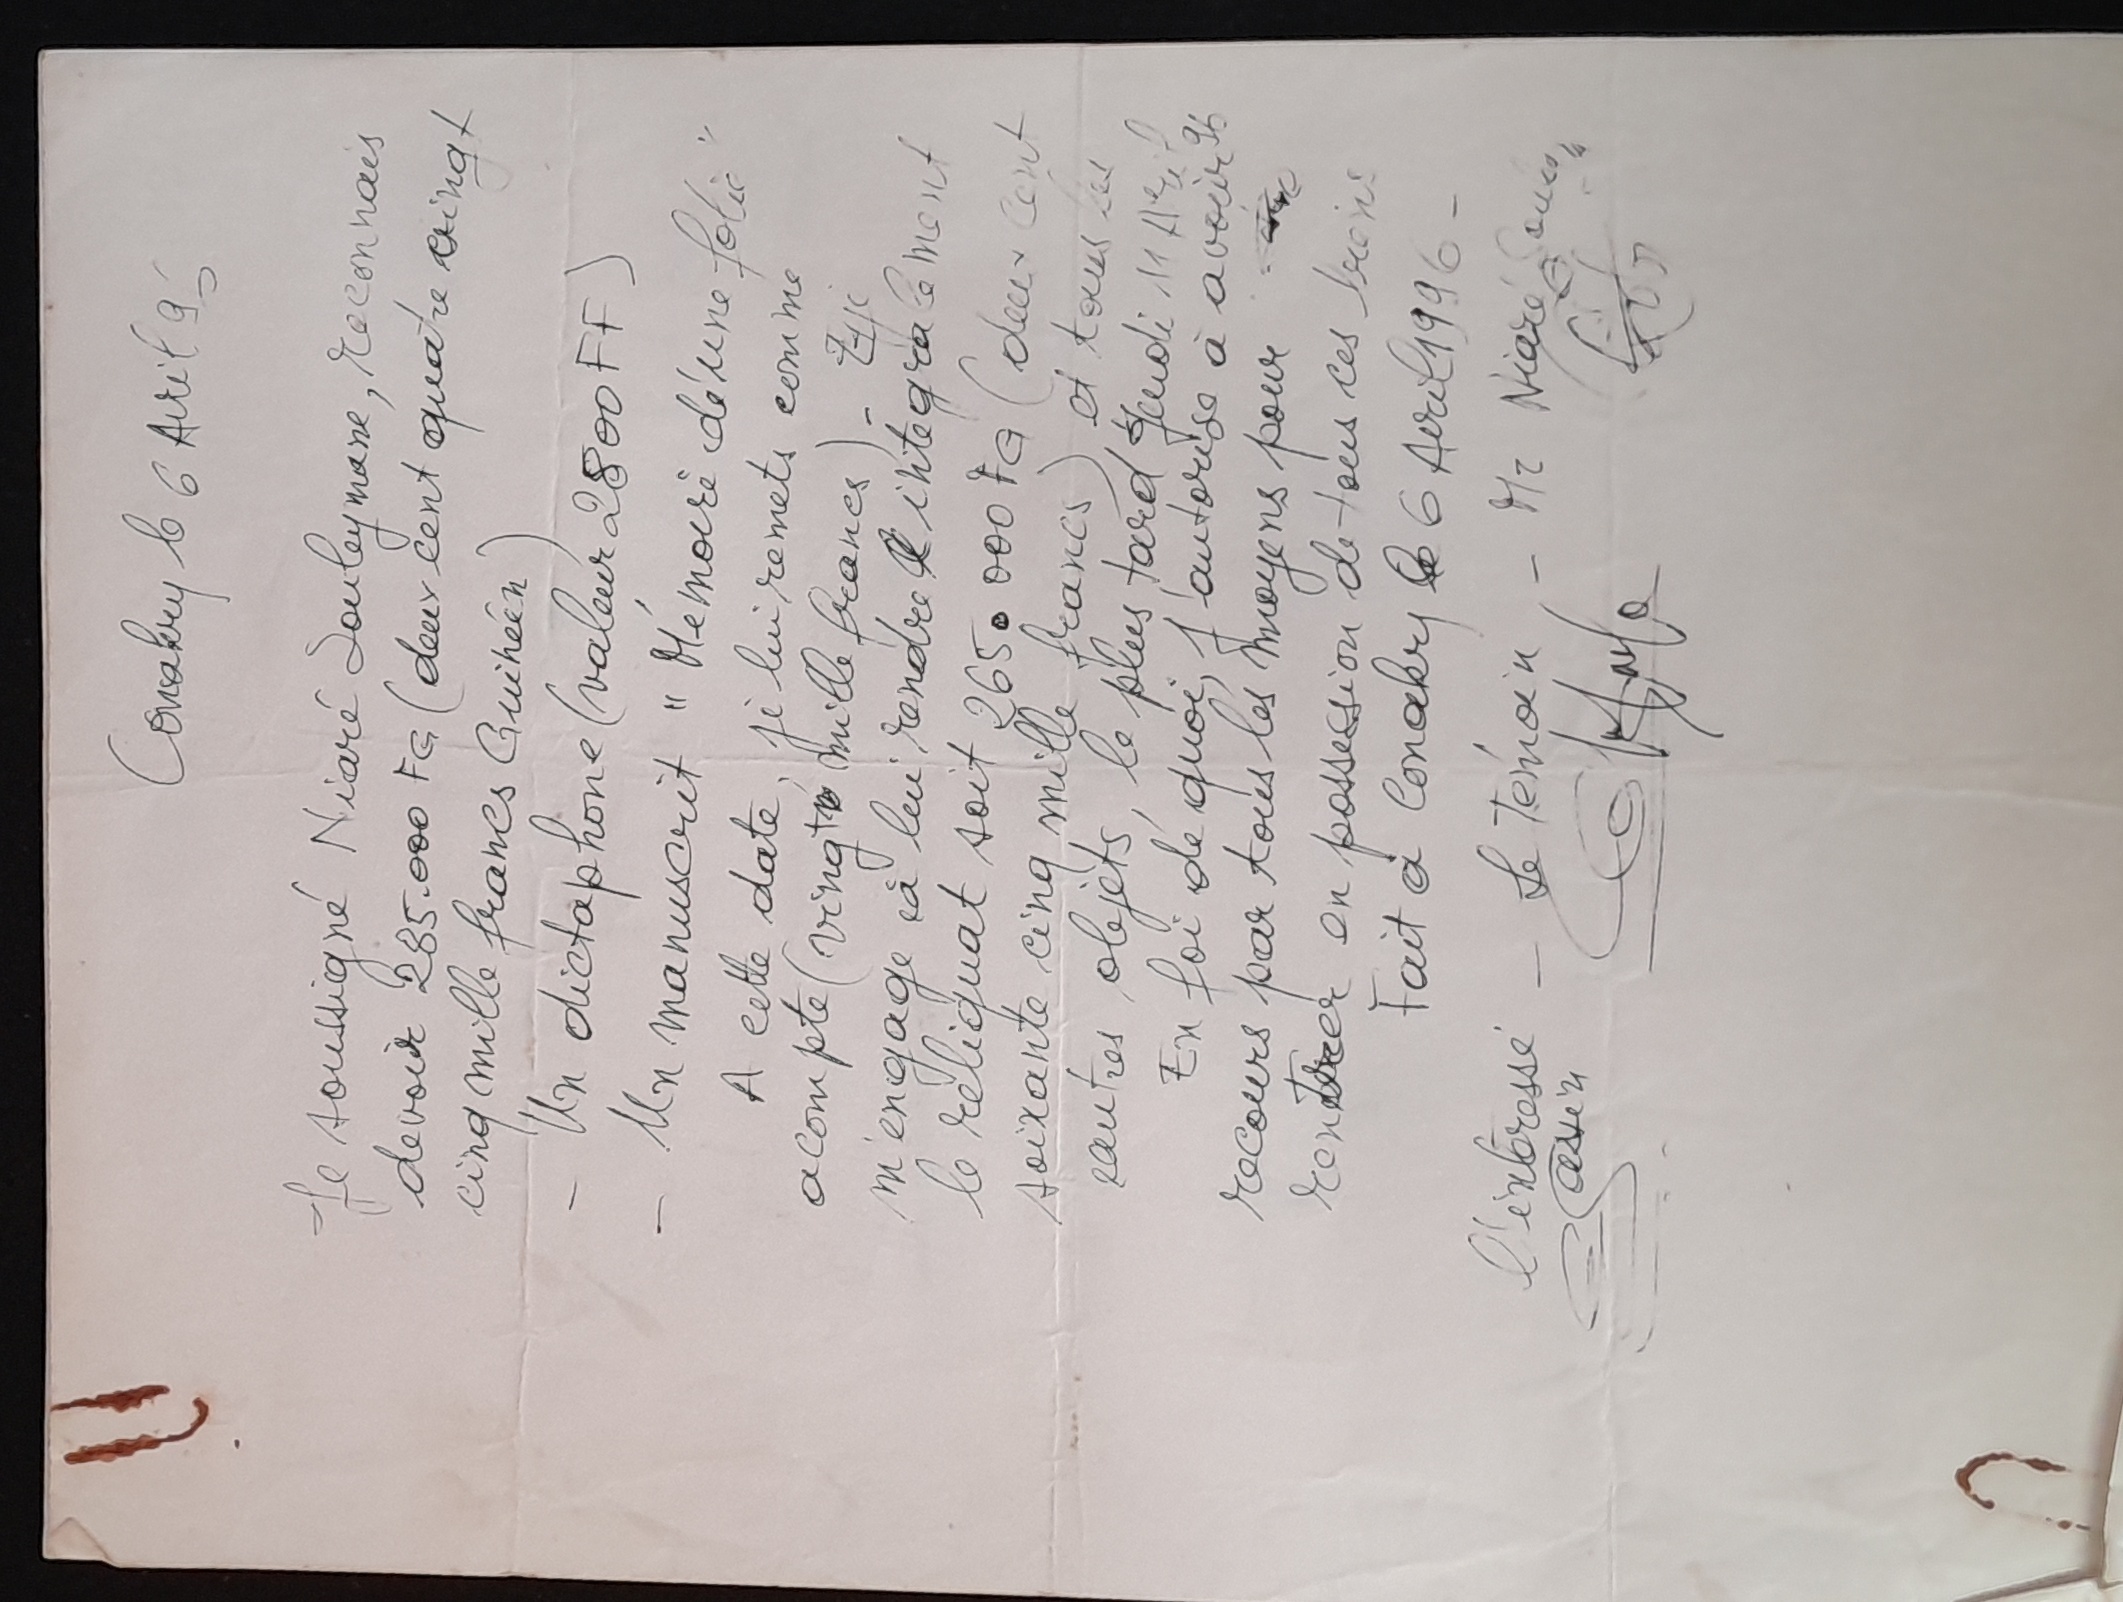 Conakry le 6 Avril 9
Je soussigné Niaré Souleymane, reconnais
devoir 285.000 FG (deux cent quatre vingt
cinq mille francs Guinéen)
- Un dictaphone (valeur 2800 FF)
- Un manuscrit " Mémoire d'une folie "
A cette date, je lui remets comme
acompte (vingt mille francs) - Et je
m'engage à lui rendre intégralement
le reliquat soit 265.000 FG (deux cent
soixante cinq mille francs) et tous les
autres objets, le plus tard Jeudi 11 Avril 96
En foi de quoi, j'autorise à avoir
recours par tous les moyens pour
rentrer en possession de tous ces biens
Fait à Conakry le 6 Avril 1996 -
l'intéressé - Le Témoin - Mr Niaré